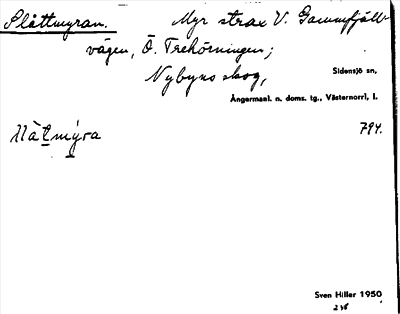 Slåttmyran. Myr strax V. Gammfjäll-
vägen, Ö. Trehörningen;
Nybyns skog, Sidensjö sn,
Ångermanl. n. doms. tg., Västernorrl, l.
794.
Sven Hiller 1950